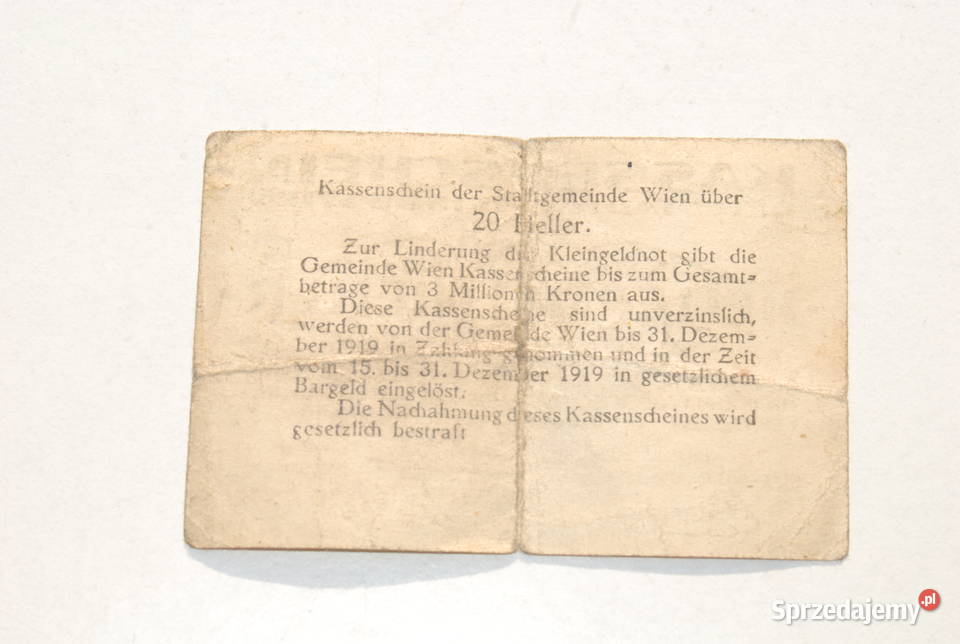 Kassenschein der Stadtgemeinde Wien über
20 Heller.
Zur Linderung der Kleingeldnot gibt die
Gemeinde Wien Kassenscheine bis zum Gesamt=
betrage von 3 Millionen Kronen aus.
Diese Kassenscheine sind unverzinslich,
werden von der Gemeinde Wien bis 31. Dezem=
ber 1919 in Zahlung genommen und in der Zeit
vom 15. bis 31. Dezember 1919 in gesetzlichem
Bargeld eingelöst.
Die Nachahmung dieses Kassenscheines wird
gesetzlich bestraft
Sprzedajemy.pl